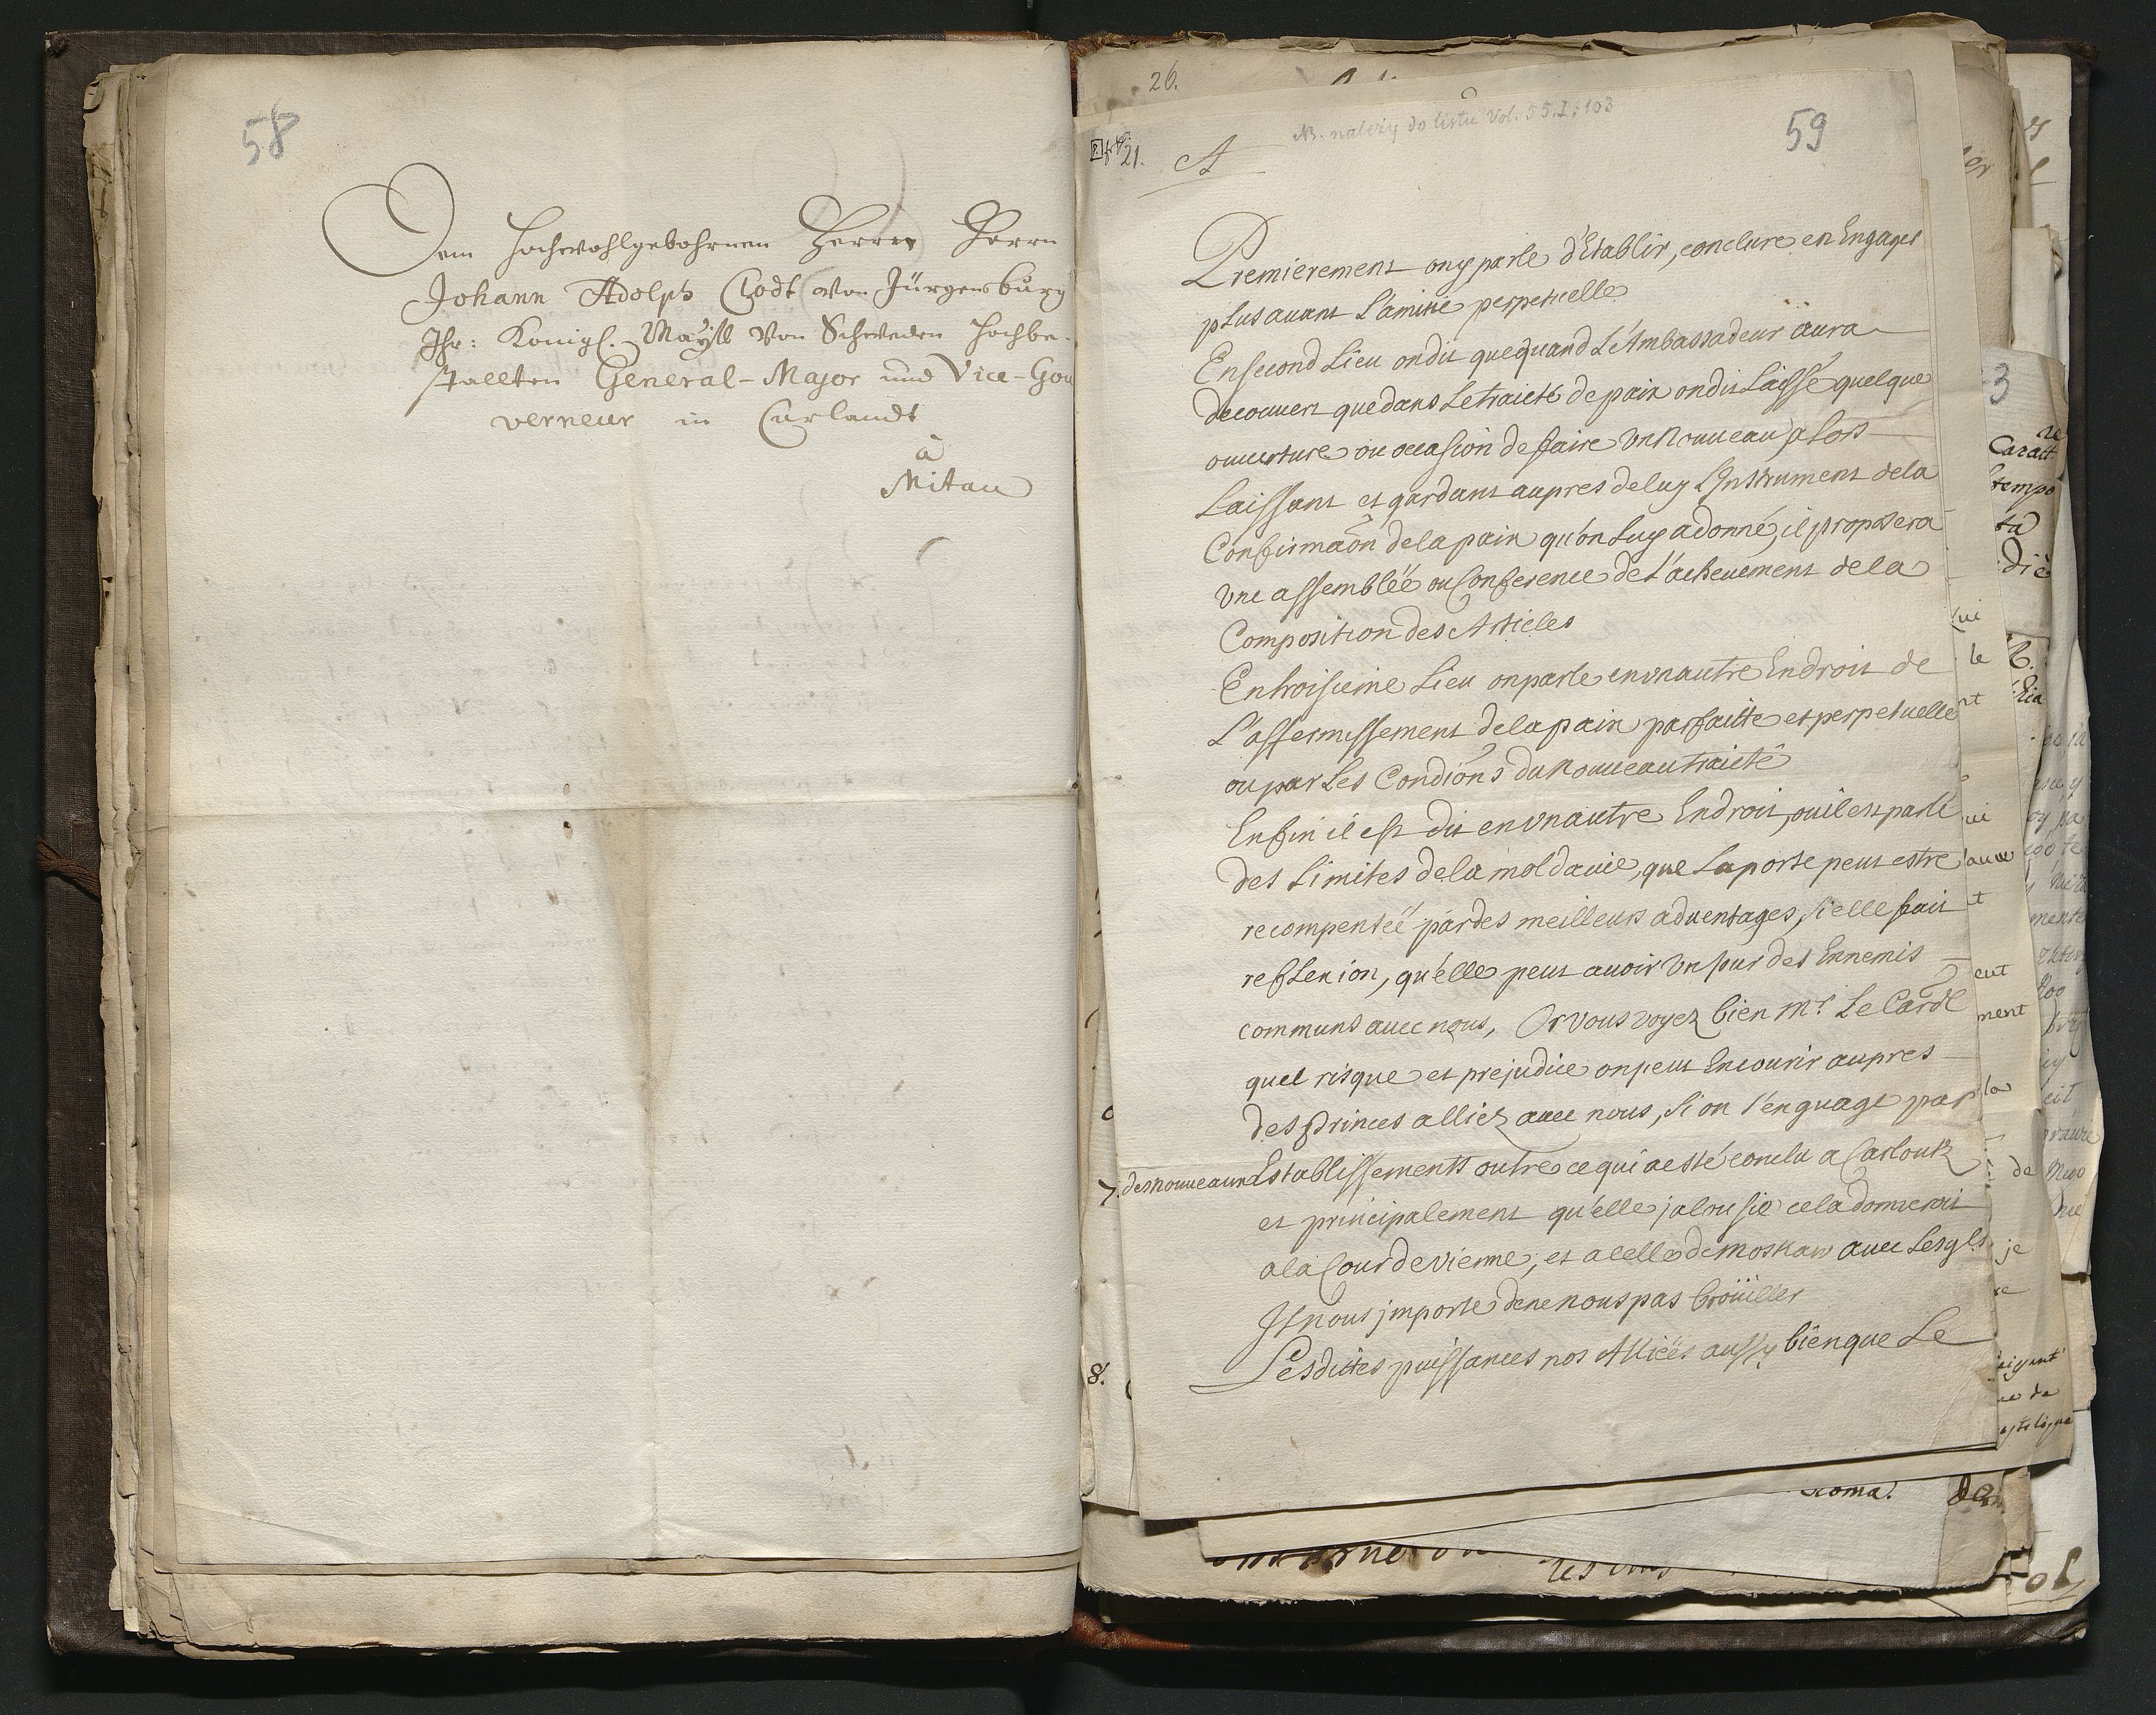 58
Dem Hochwohlgebohrnen Herrn Herrn
Johann Adolph Clodt von Jürgensburg
Ihr: Königl. Mayst von Schweden Hochbe-
stallten General-Major und Vice-Gou
verneur in Curlandt
à
Mitau
26.
NB. należy do listu Vol. 55. I: 103
59
21.
A
Premierement on y parle d'Etablir, conclure en Engager
plus auant L'amitié perpetuelle
En second Lieu on dit que quand L'Ambassadeur aura
decouuert que dans Le traicté de paix on dit Laissé quelque
ouuerture ou occasion de faire un Nouueau alors
Laissant et gardant aupres de luy L'Instrument de la
Confirmaõn de la paix qu'on Luy a donné, il proposera
vne assemblée ou Conference de L'acheuement de la
Composition des Articles
En troisieme Lieu on parle en vn autre Endroit de
L'affermissement de la paix parfaitte et perpetuelle
ou par Les Condiõns du Nouueau traicté
Enfin il est dit en vn autre Endroit, ou il est parlé
des Limites de la moldauie, que La porte peut estre
recompensée par des meilleurs aduentages, si elle fait
reflexion, qu'elle peut auoir un jour des Ennemis
communs auec nous, Or vous voyez bien Mr. Le Cardl
quel risque et prejudice on peut Encourir aupres
des Princes alliez auec nous, si on s'enguage par
des nouueaux Establissements outre ce qui a esté conclu a Carloutz
et principalement qu'elle jalousie cela donneroit
a la Cour de vienne, et a celle de Moskaw auec Lesqls
Il nous jmporte de ne nous pas broüiller
Lesdittes puissances nos Alliées aussy bien que Le
7.
8.
3
Caract
tempo
ui
le
nt
ui
t
ent
ment
la
de
je
re
Roma.